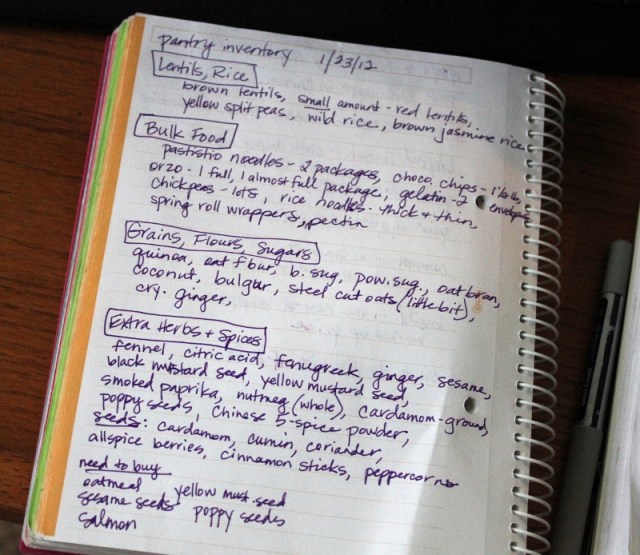 pantry inventory 1/23/12
Lentils, Rice
brown lentils, small amount - red lentils,
yellow split peas, wild rice, brown jasmine rice
Bulk Food
pastistio noodles - 2 packages, choco. chips - 1
orzo - 1 full, 1 almost full package, gelatin - 2 envelopes
chickpeas - lots, rice noodles - thick + thin,
spring roll wrappers, pectin
Grains, Flours, Sugars
quinoa, oat flour, b. sug, pow. sug., oat bran,
coconut, bulgur, steel cut oats (little bit),
cry. ginger,
Extra Herbs + Spices
fennel, citric acid, fenugreek, ginger, sesame,
black mustard seed, yellow mustard seed,
smoked paprika, nutmeg (whole), cardamom - ground,
poppy seeds, Chinese 5-spice powder,
seeds: cardamom, cumin, coriander,
allspice berries, cinnamon sticks, peppercorns
need to buy
oatmeal yellow must. seed
sesame seeds poppy seeds
salmon